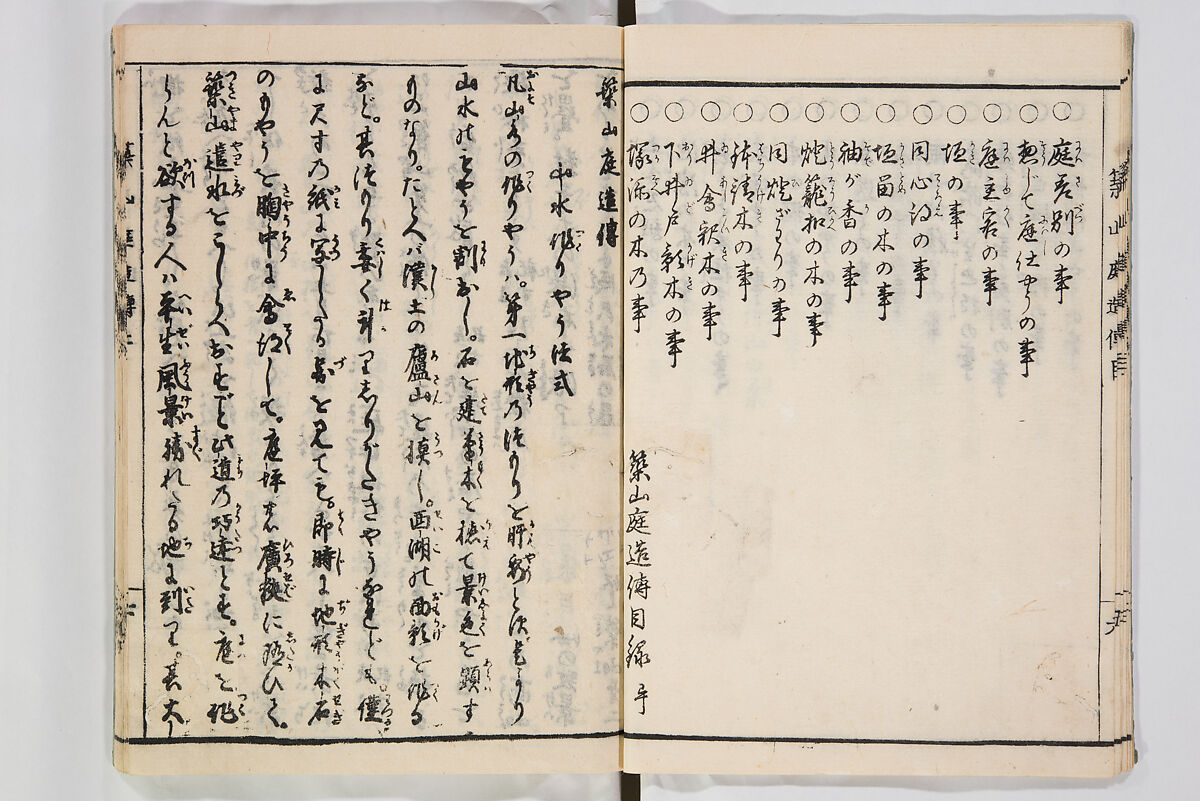 築山庭造傳目
○庭差別の事
○惣じて庭仕やうの事
○庭主客の事
○垣の事
○同心得の事
○垣留の木の事
○袖が香の事
○灯籠扣の木の事
○同灯ざわりの事
○鉢請木の事
○井會釈木の事
○下井戸影木の事
○塚添の木乃事
築山庭造傳目録 畢
築山庭造傳
山水作りやう法式
凡山水の作りやうハ。第一地形乃つもりを肝要とす
山水のもやうを割出し。石を建草木を植て景色を顕す
ものなり。たとへハ漢土の廬山を摸し。西湖の面影を作る
など。其つもり委く計りしりがたきやうなれども。僅
に尺寸乃紙に写したる畫を見ても。即時に地形木石
のもやうを胸中に會得して。庭坪も廣狭に随ひて。
築山遣水をこしらへ出すを此道乃巧達とす。庭を作
らんと欲する人ハ平生風景勝れたる地に到り。其大